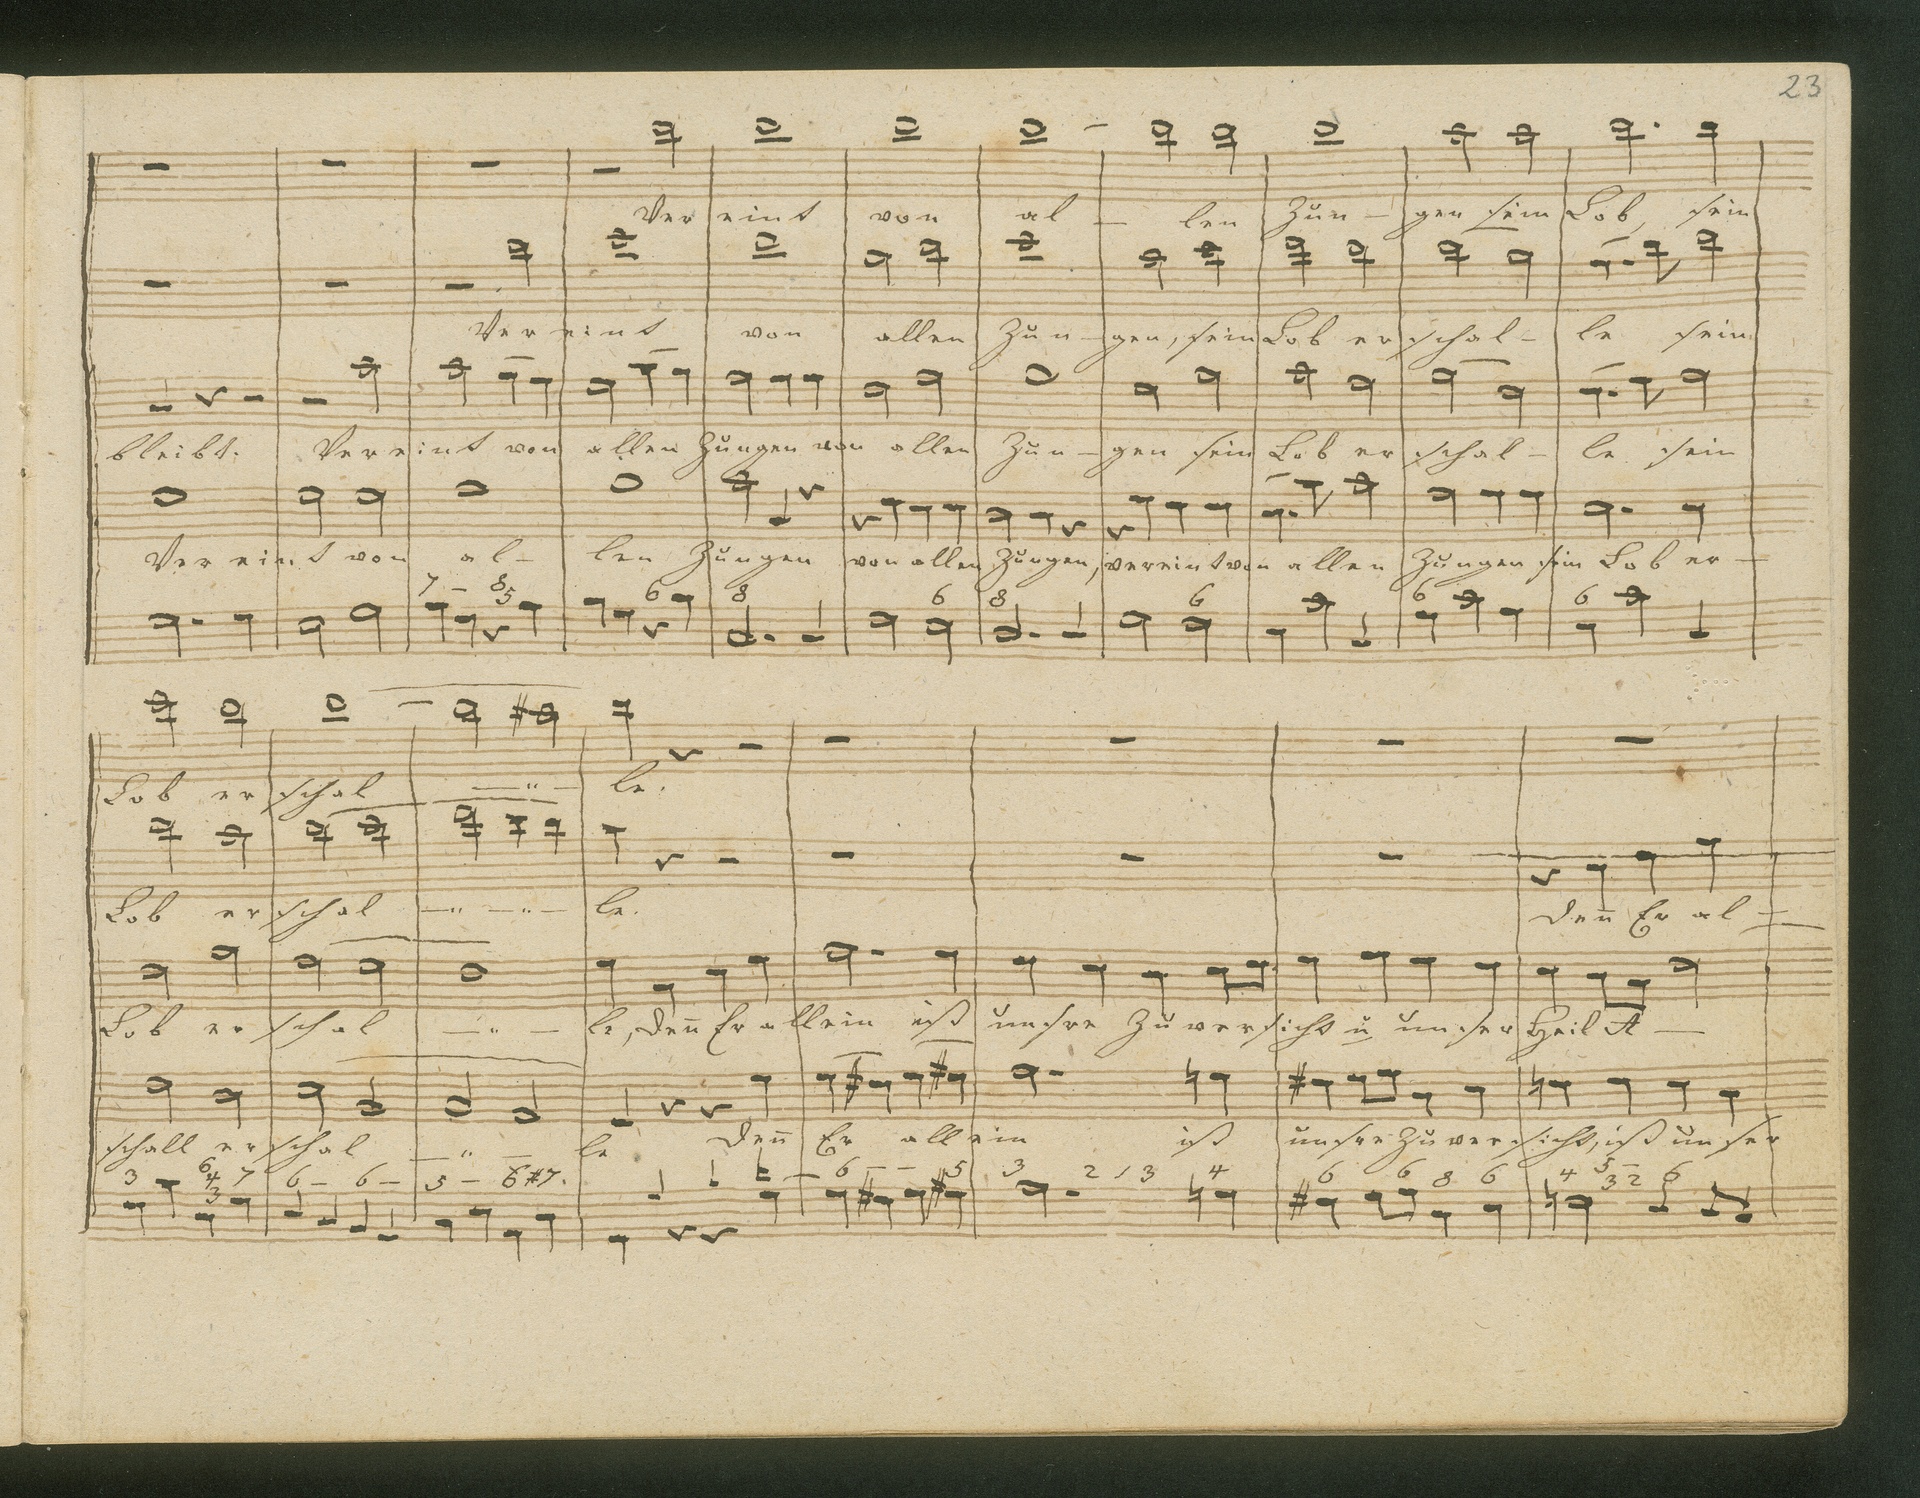 23
Ver eint von al — len Zun — gen sein Lob, sein
Ver eint von allen Zun — gen, sein Lob er schal — le sein
bleibt. Vereint von allen Zungen von allen Zun — gen sein Lob er schal — le sein
Ver eint von al — len Zungen von allen Zungen, vereint von allen Zungen sein Lob er —
7 – 8 5 6 8 6 8 6 6 6
Lob er schal — " — le.
Lob er schal — " — " — le.
Denn Er al —
Lob er schal — " — le, denn Er allein ist unsre Zuversicht u unser Heil A —
schall er schal — " — le Denn Er allein ist unsre Zuversicht, ist unser
3 6 4 3 7 6 – 6 – 5 – 6 #7. – 6 – – 5 3 2 1 3 4 6 6 8 6 4 5 – 3 2 6